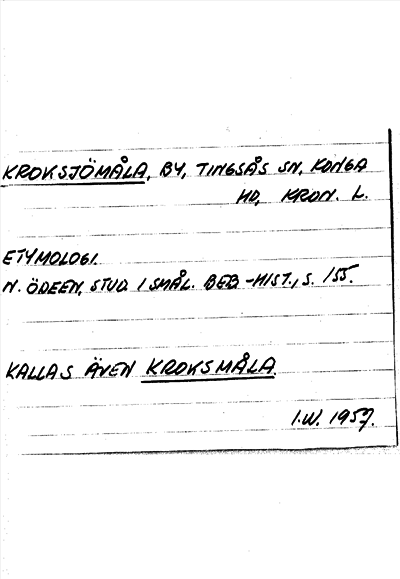 KROKSJÖMÅLA, BY, TINGSÅS SN, KONGA
HD, KRON. L.
ETYMOLOGI.
N. ÖDEEN, STUD I SMÅL. BEB-HIST., S. 155.
KALLAS ÄVEN KROKSMÅLA.
I.W. 1957.